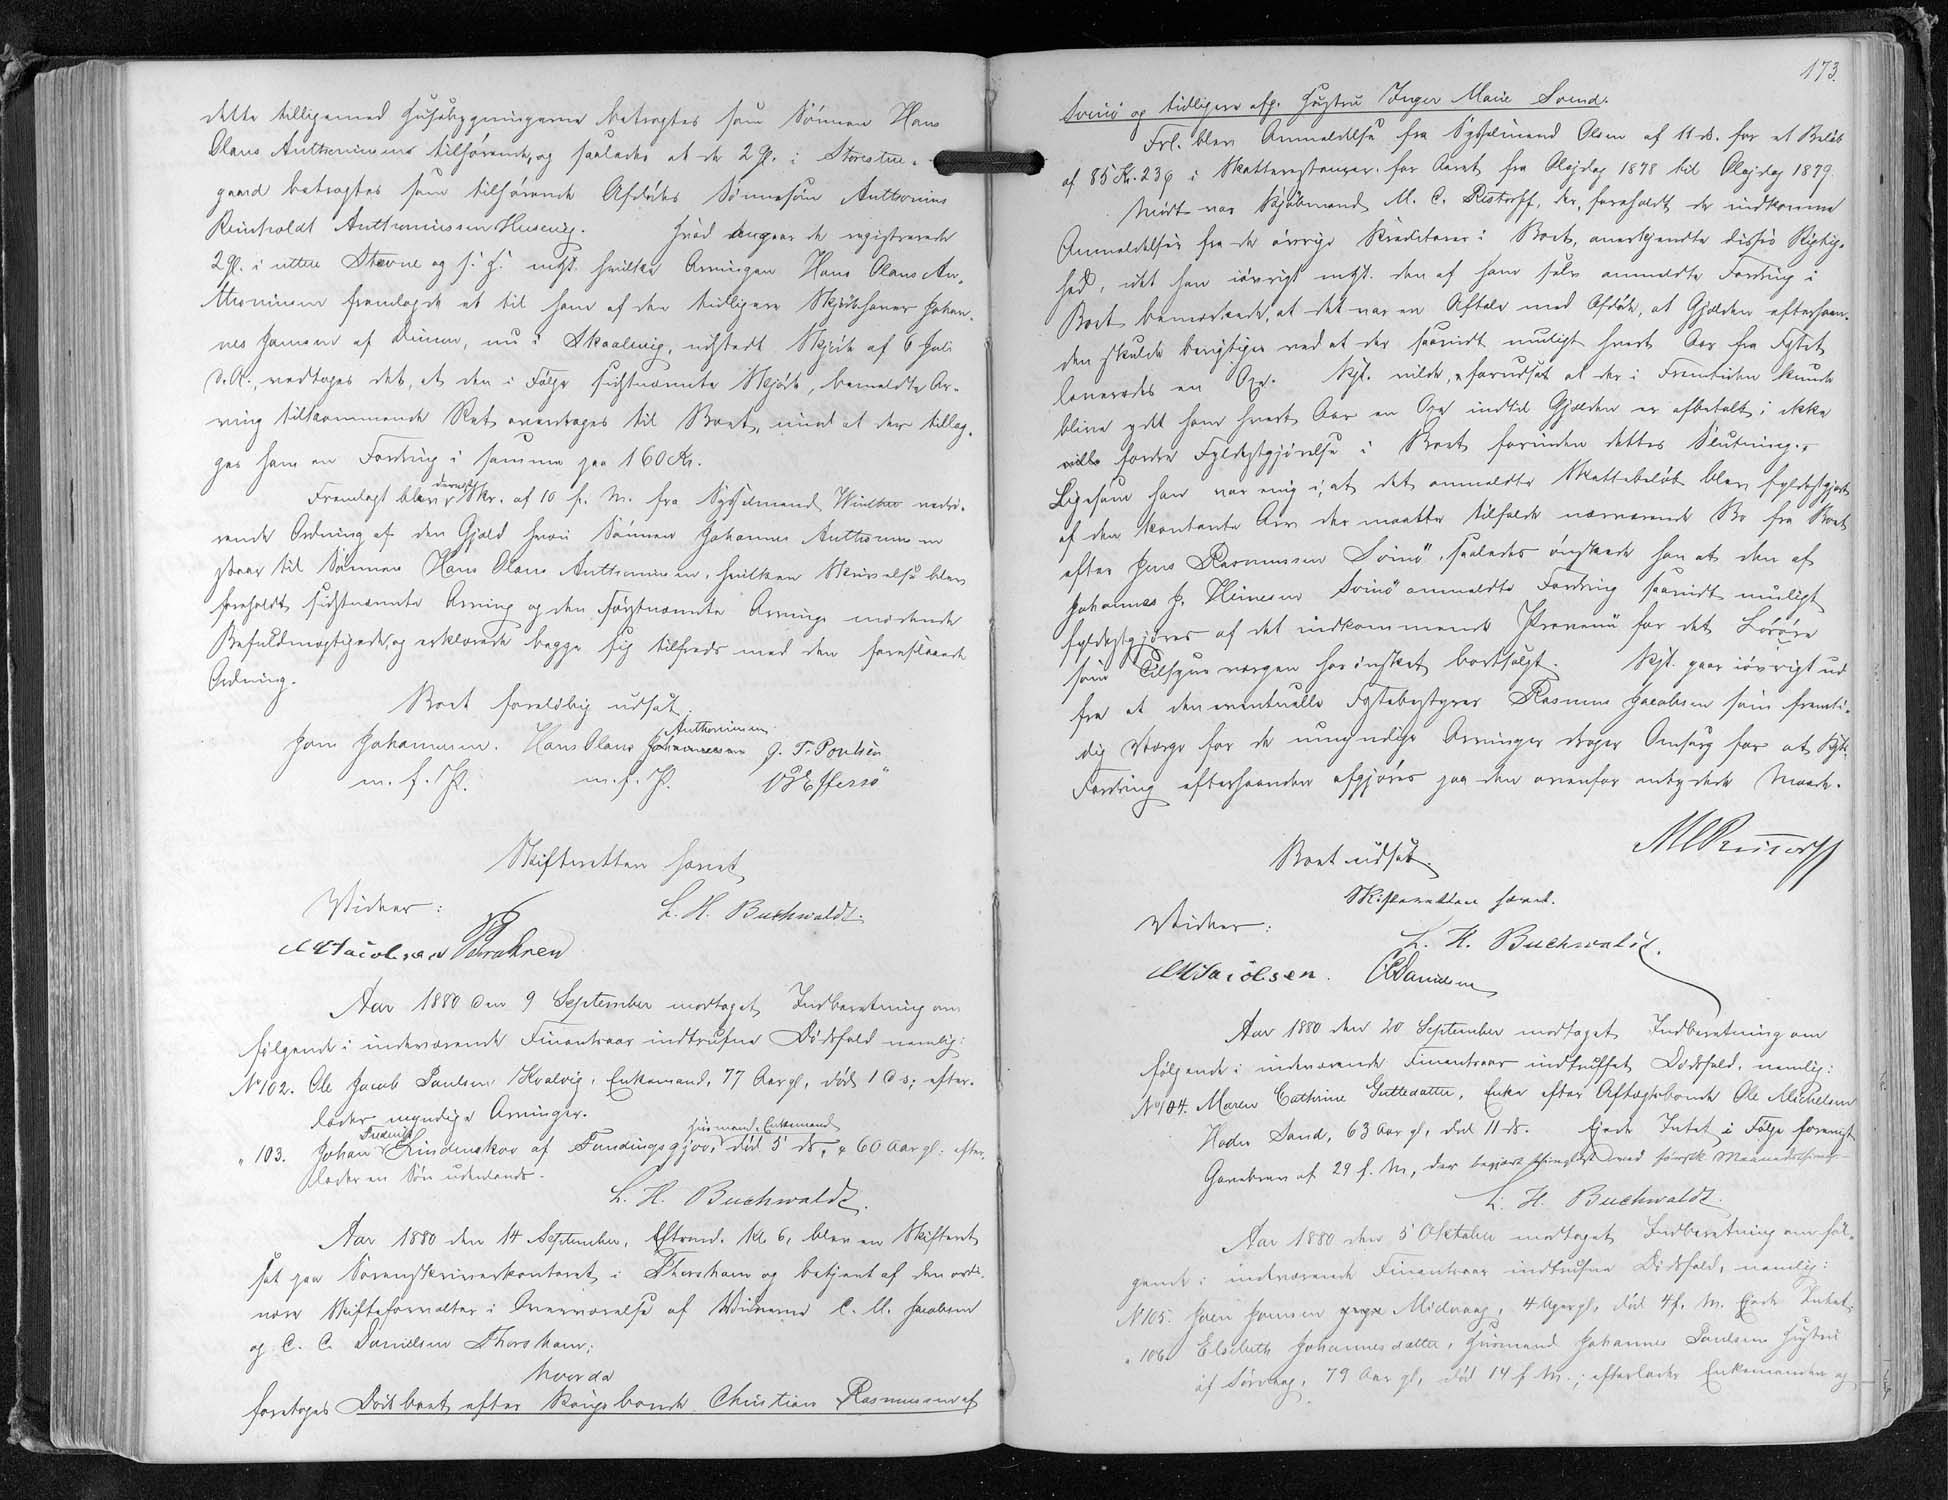 dette tilligemed Husbygningerne betragtes som Sønnen Hans
Olaus Anthoniussens tilhørende, og saaledes at de 2 Gl. i Storestue-
gaard betragtes som tilhørende Afdødes Sønnesøn Anthonius
Reinholdt Anthoniussen Husevig. Hvad angaar de registrerede
2 Gl. i uttere Stovne og s. H. mht. hvilke Arvingen Hans Olaus An-
thoniussen fremlagde et til ham af den tidligere Skjødehaver Johan-
nes Hansen af Dimon, nu i Skaalevig, udstedt Skjøde af 6 Juli
d.A., vedtoges det, at den i Følge sidstnævnte Skjøde, bemeldte Ar-
ving tilkommende Ret overdrages til Boet, imod at der tillæg-
ges ham en Fordring i samme paa 160 Kr.
Fremlagt blev dernæst Skr. af 10 f. M. fra Sysselmand Winther vedrø-
rende Ordning af den Gjæld hvori Sønnen Johannes Anthoniussen
staar til Sønnen Hans Olaus Anthoniussen, hvilken Skrivelse blev
foreholdt sidstnævnte Arving og den førstnævnte Arvings mødende
Befuldmægtigede, og erklærede begge sig tilfreds med den foreslaaede
Ordning.
Boet foreløbig udsat.
Anthoniussen
Jens Johannesen. Hans Olaus Johannesen J. T. Poulsen
m. f. P. m. f. P.
Skifteretten hævet
Vidner: L. H. Buchwaldt.
CMJacobsen
Aar 1880 den 9 September modtoges Indberetning om
følgende i indeværende Finantsaar indtrufne Dødsfald nemlig:
No 102. Ole Jacob Poulsen Kvalvig, Enkemand, 77 Aar gl, død 1 ds; efter-
lader myndige Arvinger.
Frederik Huusmand, Enkemand
" 103. Johan Lindenskov af Fundingsgjov, død 5 ds, " 60 Aar gl: efter-
lader en Søn udenlands.
L. H. Buchwaldt.
Aar 1880 den 14 September, Eftmd. Kl 6, blev en Skifteret
sat paa Sorenskriverkontoret i Thorshavn og betjent af den ordi-
nære Skifteforvalter i Overværelse af Vidnerne C. M. Jacobsen
og C. C. Danielsen Thorshavn;
hvorda
foretoges Dødsboet efter Kongsbonde Christian Rasmussen af
173.
Svinø og tidligere afg. Hustru Inger Marie Svend.
Frl. blev Anmeldelse fra Sysselmand Olsen af 11 ds. for et Beløb
af 85 Kr. 23 ø i Skatterestancer for Aaret fra Olajdag 1878 til Olajdag 1879.
Mødt var Kjøbmand M. C. Restorff, der, foreholdt de indkomne
Anmeldelser fra de øvrige Kreditorer i Boet, anerkjendte disses Rigtig-
hed, idet han iøvrigt mht. den af ham selv anmeldte Fordring i
Boet bemærkede, at det var en Aftale med Afdøde, at Gjælden efterhaan-
den skulde berigtiges ved at der saavidt muligt hvert Aar fra Fæstet
leveredes en Oxe. Kpt. vilde, forudsat at der i Fremtiden kunde
blive ydet ham hvert Aar en Oxe indtil Gjælden er afbetalt, ikke
fordre Fyldestgjørelse i Boet forinden dettes Slutning.
Ligesom han var enig i, at det anmeldte Skattebeløb blev fyldestgjort
af den kontante Arv der maatte tilfalde nærværende Bo fra Boet
efter Jens Rasmussen Svinø, saaledes ønskede han at den af
Johannes J. Heinesen Svinø anmeldte Fordring saavidt muligt
fyldestgjøres af det indkommende Provenü for det Løsøre
som Tilsynsværgen har ønsket bortsolgt. Kpt. gaar iøvrigt ud
fra at den eventuelle Fæstebestyrer Rasmus Jacobsen som fremti-
dig Værge for de umyndige Arvinger drager Omsorg for at Kpts.
Fordring efterhaanden afgjøres paa den ovenfor antydede Maade.
Boet udsat. MCRestorff
Skifteretten hævet.
Vidner: L. H. Buchwaldt.
CMJacobsen. CCDanielsen
Aar 1880 den 20 September modtoges Indberetning om
følgende i indeværende Finantsaar indtruffet Dødsfald, nemlig:
No 104. Maren Cathrine Guttesdatter, Enke efter Aftægtsbonde Ole Michelsen
Heder Sand, 63 Aar gl, død 11 ds. Ejede Intet i Følge forevist
Gavebrev af 29 f. M, der
L. H. Buchwaldt.
Aar 1880 den 5 Oktober modtoges Indberetning om føl-
gende i indeværende Finantsaar indtrufne Dødsfald, nemlig:
No 105. Joen Joensen Midvaag, 4 Uger gl, død 4 f. M. Ejede Intet.
" 106. Elsebeth Johannesdatter, Huusmand Johannes Poulsens Hustru
af Sørvaag, 79 Aar gl, død 14 f. M.; efterlader Enkemanden og